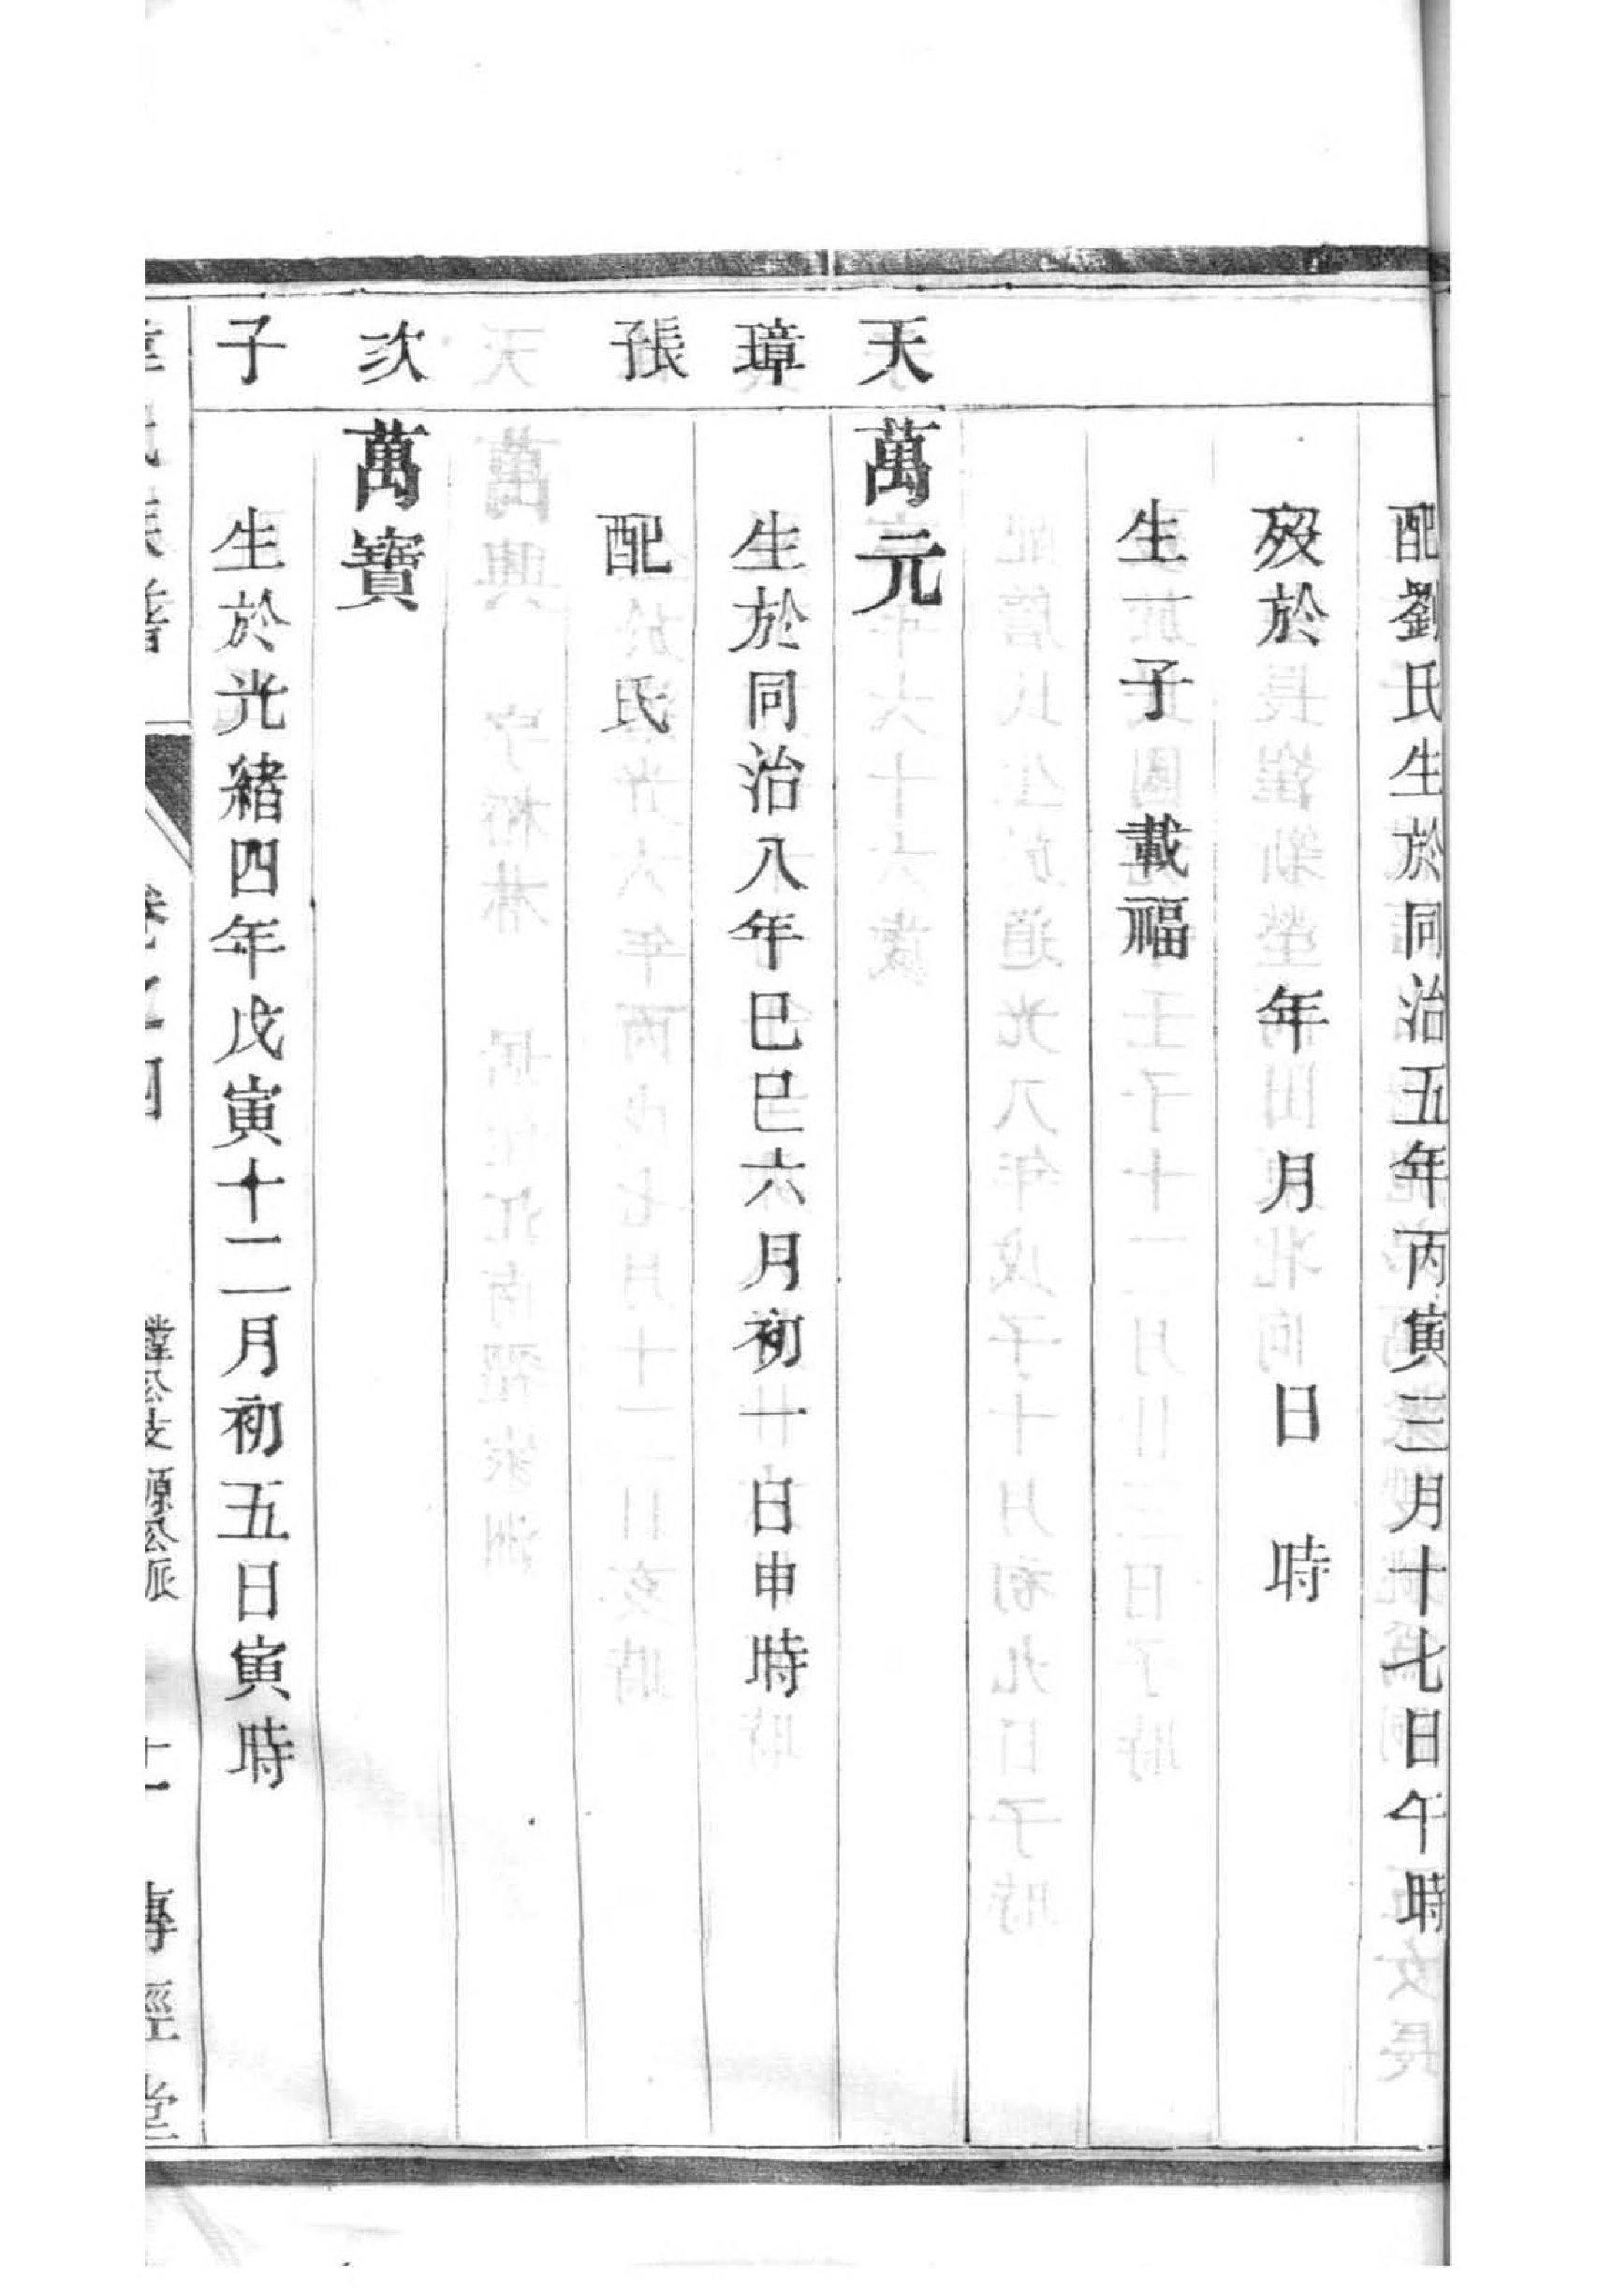 配劉氏生於同治五年丙寅三月十七日午時
歿於 年 月 日 時
生一子 載福
天 萬元
璋 生於同治八年巳巳六月初一日申時
長子 配 氏
次 萬寶
子 生於光緒四年戊寅十二月初五日寅時
氏族譜 卷之四 公支 源公派 十一 傳經堂